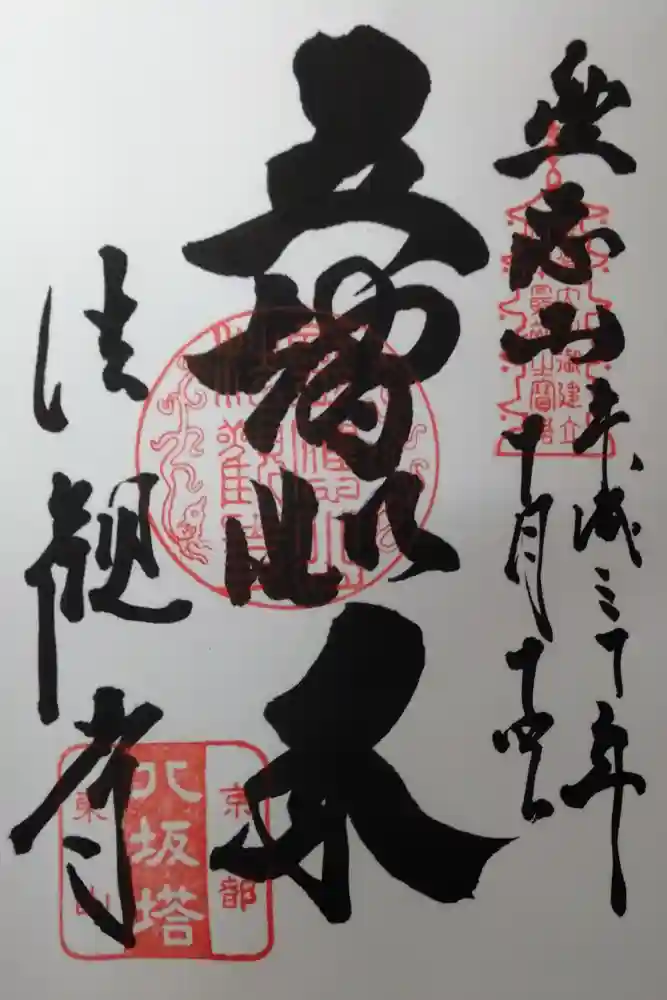 霊応山
平成三十年
十月十四日
五智如来
法観寺
京都
八坂塔
東山